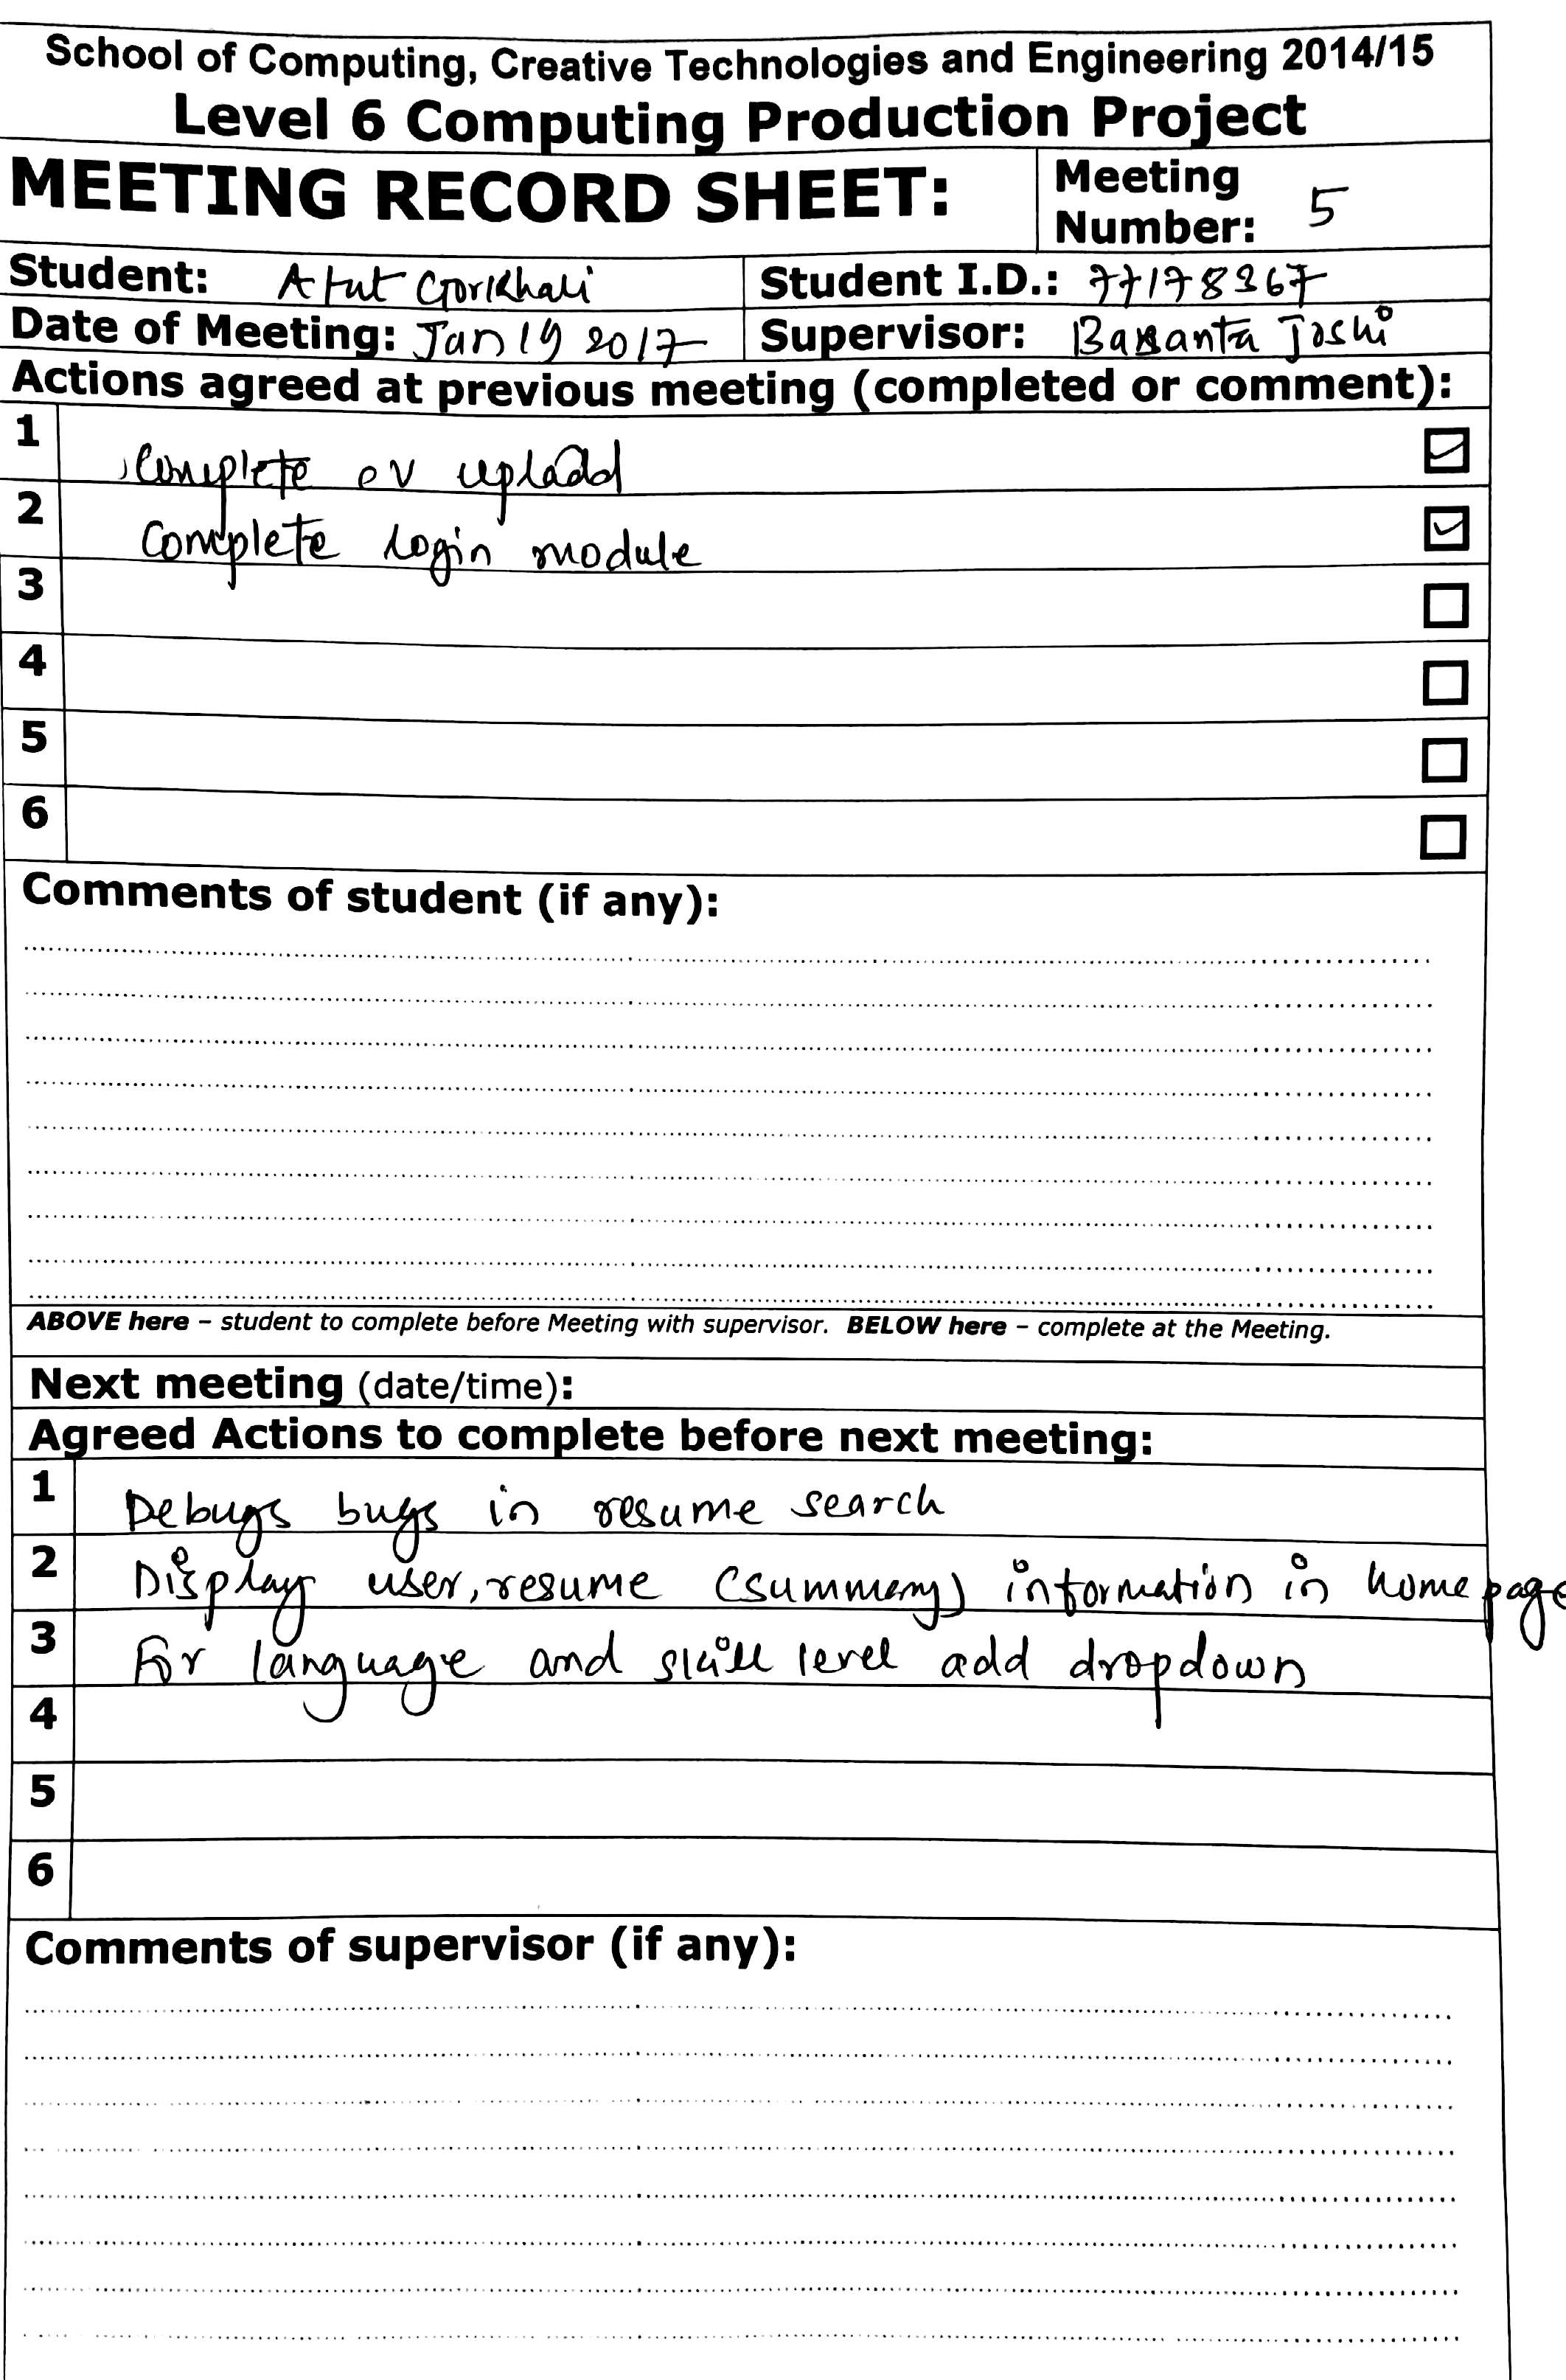 School of Computing, Creative Technologies and Engineering 2014/15
Level 6 Computing Production Project
MEETING RECORD SHEET:
Meeting Number: 5
Student: Atut Gorkhali
Student I.D.: 77178367
Date of Meeting: Jan 19 2017
Supervisor: Basanta Joshi
Actions agreed at previous meeting (completed or comment):
1 Complete cv upload
2 Complete login module
3
4
5
6
Comments of student (if any):
ABOVE here – student to complete before Meeting with supervisor. BELOW here – complete at the Meeting.
Next meeting (date/time):
Agreed Actions to complete before next meeting:
1 Debugs bugs in resume search
2 Display user, resume (summery) information in home page
3 For language and skill level add dropdown
4
5
6
Comments of supervisor (if any):